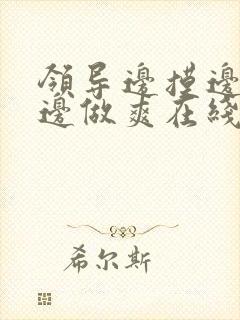 領导邊摸邊
邊做爽在綫
希尔斯